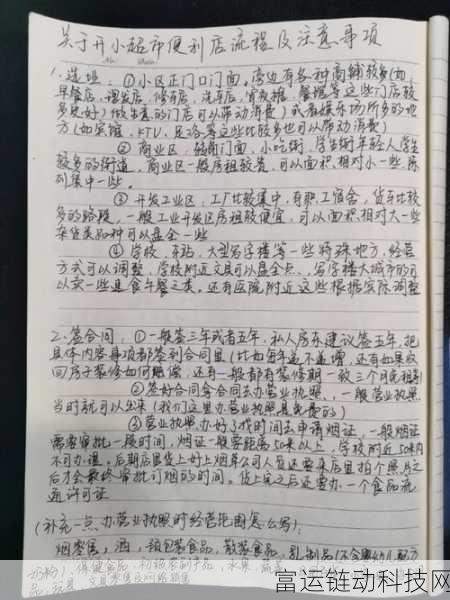 关于开小超市便利店流程及注意事项
1. 选址，①小区正门口门面。旁边有各种商铺较多(如
早餐店，理发店，修车店，洗车店，宵夜摊，餐馆等这些门店较
多更好)做生意的门店可以带动消费)或者娱乐场所多的地
方(如宾馆，KTV，足浴等这些比较多也可以带动消费)
②商业区，转角门面，小吃街，学生街年轻人学生
较多的街道，商业区一般房租较贵，可以面积相对小一些，陈
列集中一些。
③开发工业区，工厂比较集中，有职工宿舍，货车比较
多的路段，一般工业开发区房租较便宜，可以面积相对大一些
杂货类品种可以盘全一些
④学校，车站，大型写字楼等一些特殊地方，经营
方式可以调整，学校附近文具可以盘全点，写字楼大城市的可
以卖一些速食午餐之类。还有医院附近这些根据实际调整
2. 签合同，①一般签三年或者五年，私人房东建议签五年，把
具体内容事项都签到合同里(比如每年递不递增，还有如果收
回房子装修如何赔偿，还有一般都有装修期一致三个月免租)
②签好合同拿合同去办营业执照，一般营业执照
当时就可以出来(我们这里办营业执照是免费的)
③营业执照办好了找时间去申请烟证，一般烟证
需要审批一段时间，烟证一般要距离50米以上，学校附近50米内
不可办理。后期店里货上好上烟草公司人员还要来店里拍个照片之
后才会最终审批订烟的时间。货上完之后还要办一个食品流
通许可证
(补充一点，办营业执照时经营范围怎么写)：
烟零售，酒，预包装食品，散装食品，乳制品(不含婴幼儿配方
奶粉)，保健食品，初级农副产品，水果，蔬菜
品，玩具，文具零售及网络销售
富运链动科技网